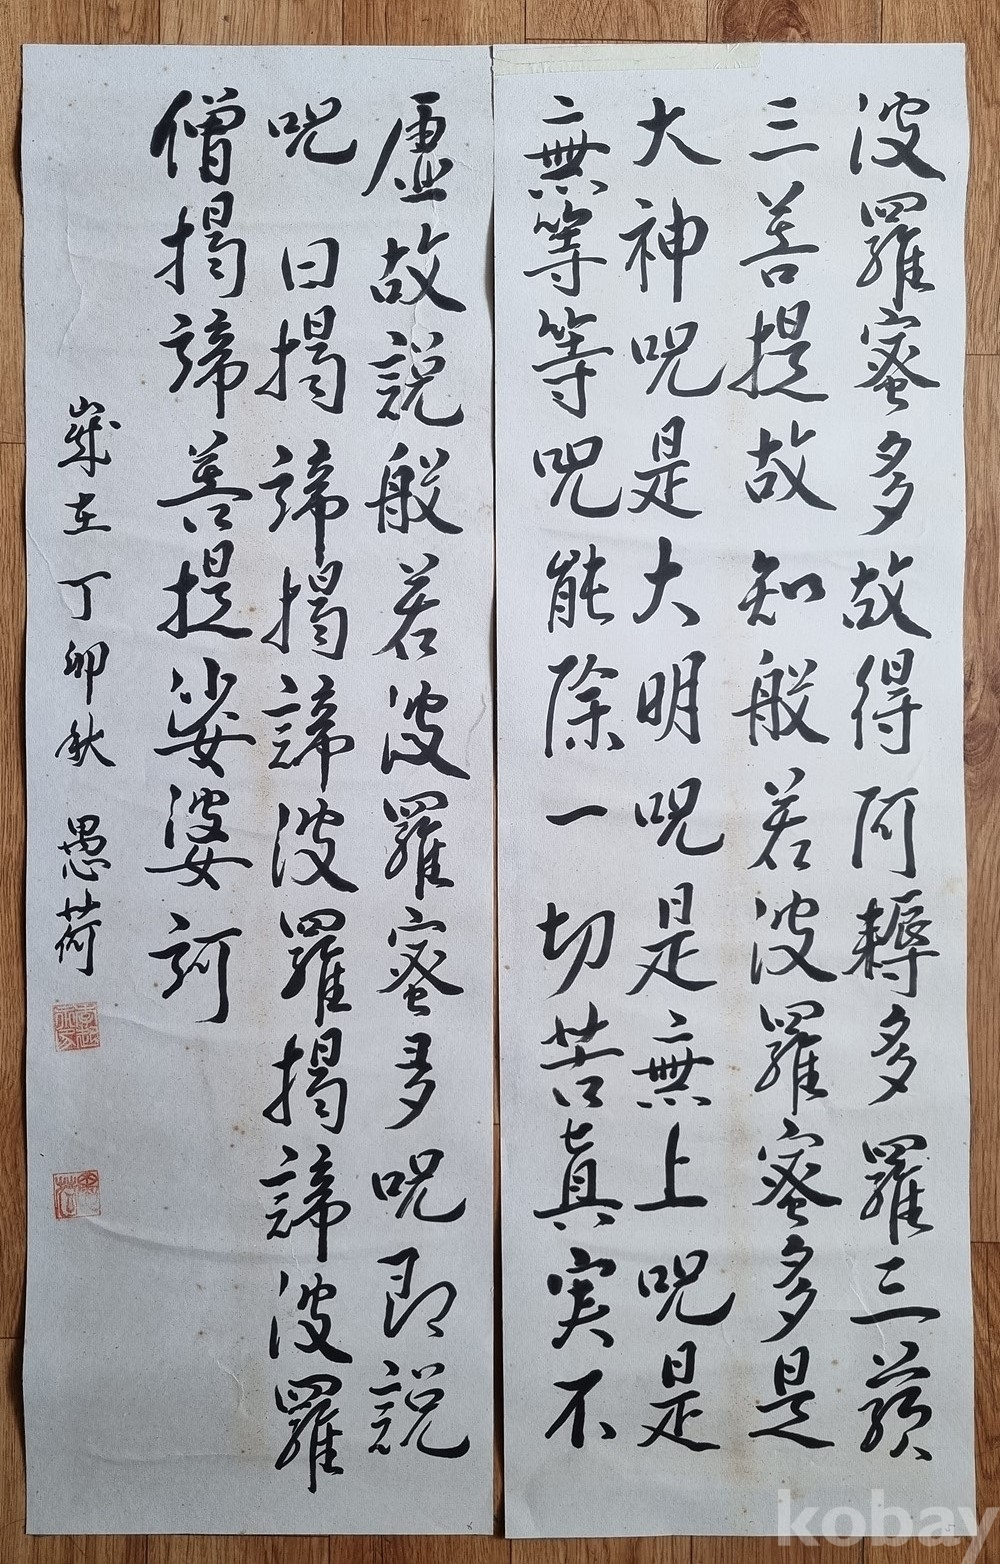 波羅蜜多故得阿耨多羅三藐
三菩提故知般若波羅蜜多是
大神呪是大明呪是無上呪是
無等等呪能除一切苦真実不
虛故說般若波羅蜜多呪即說
呪曰揭諦揭諦波羅揭諦波羅
僧揭諦菩提娑婆訶
歲在丁卯秋 愚荷
kobay